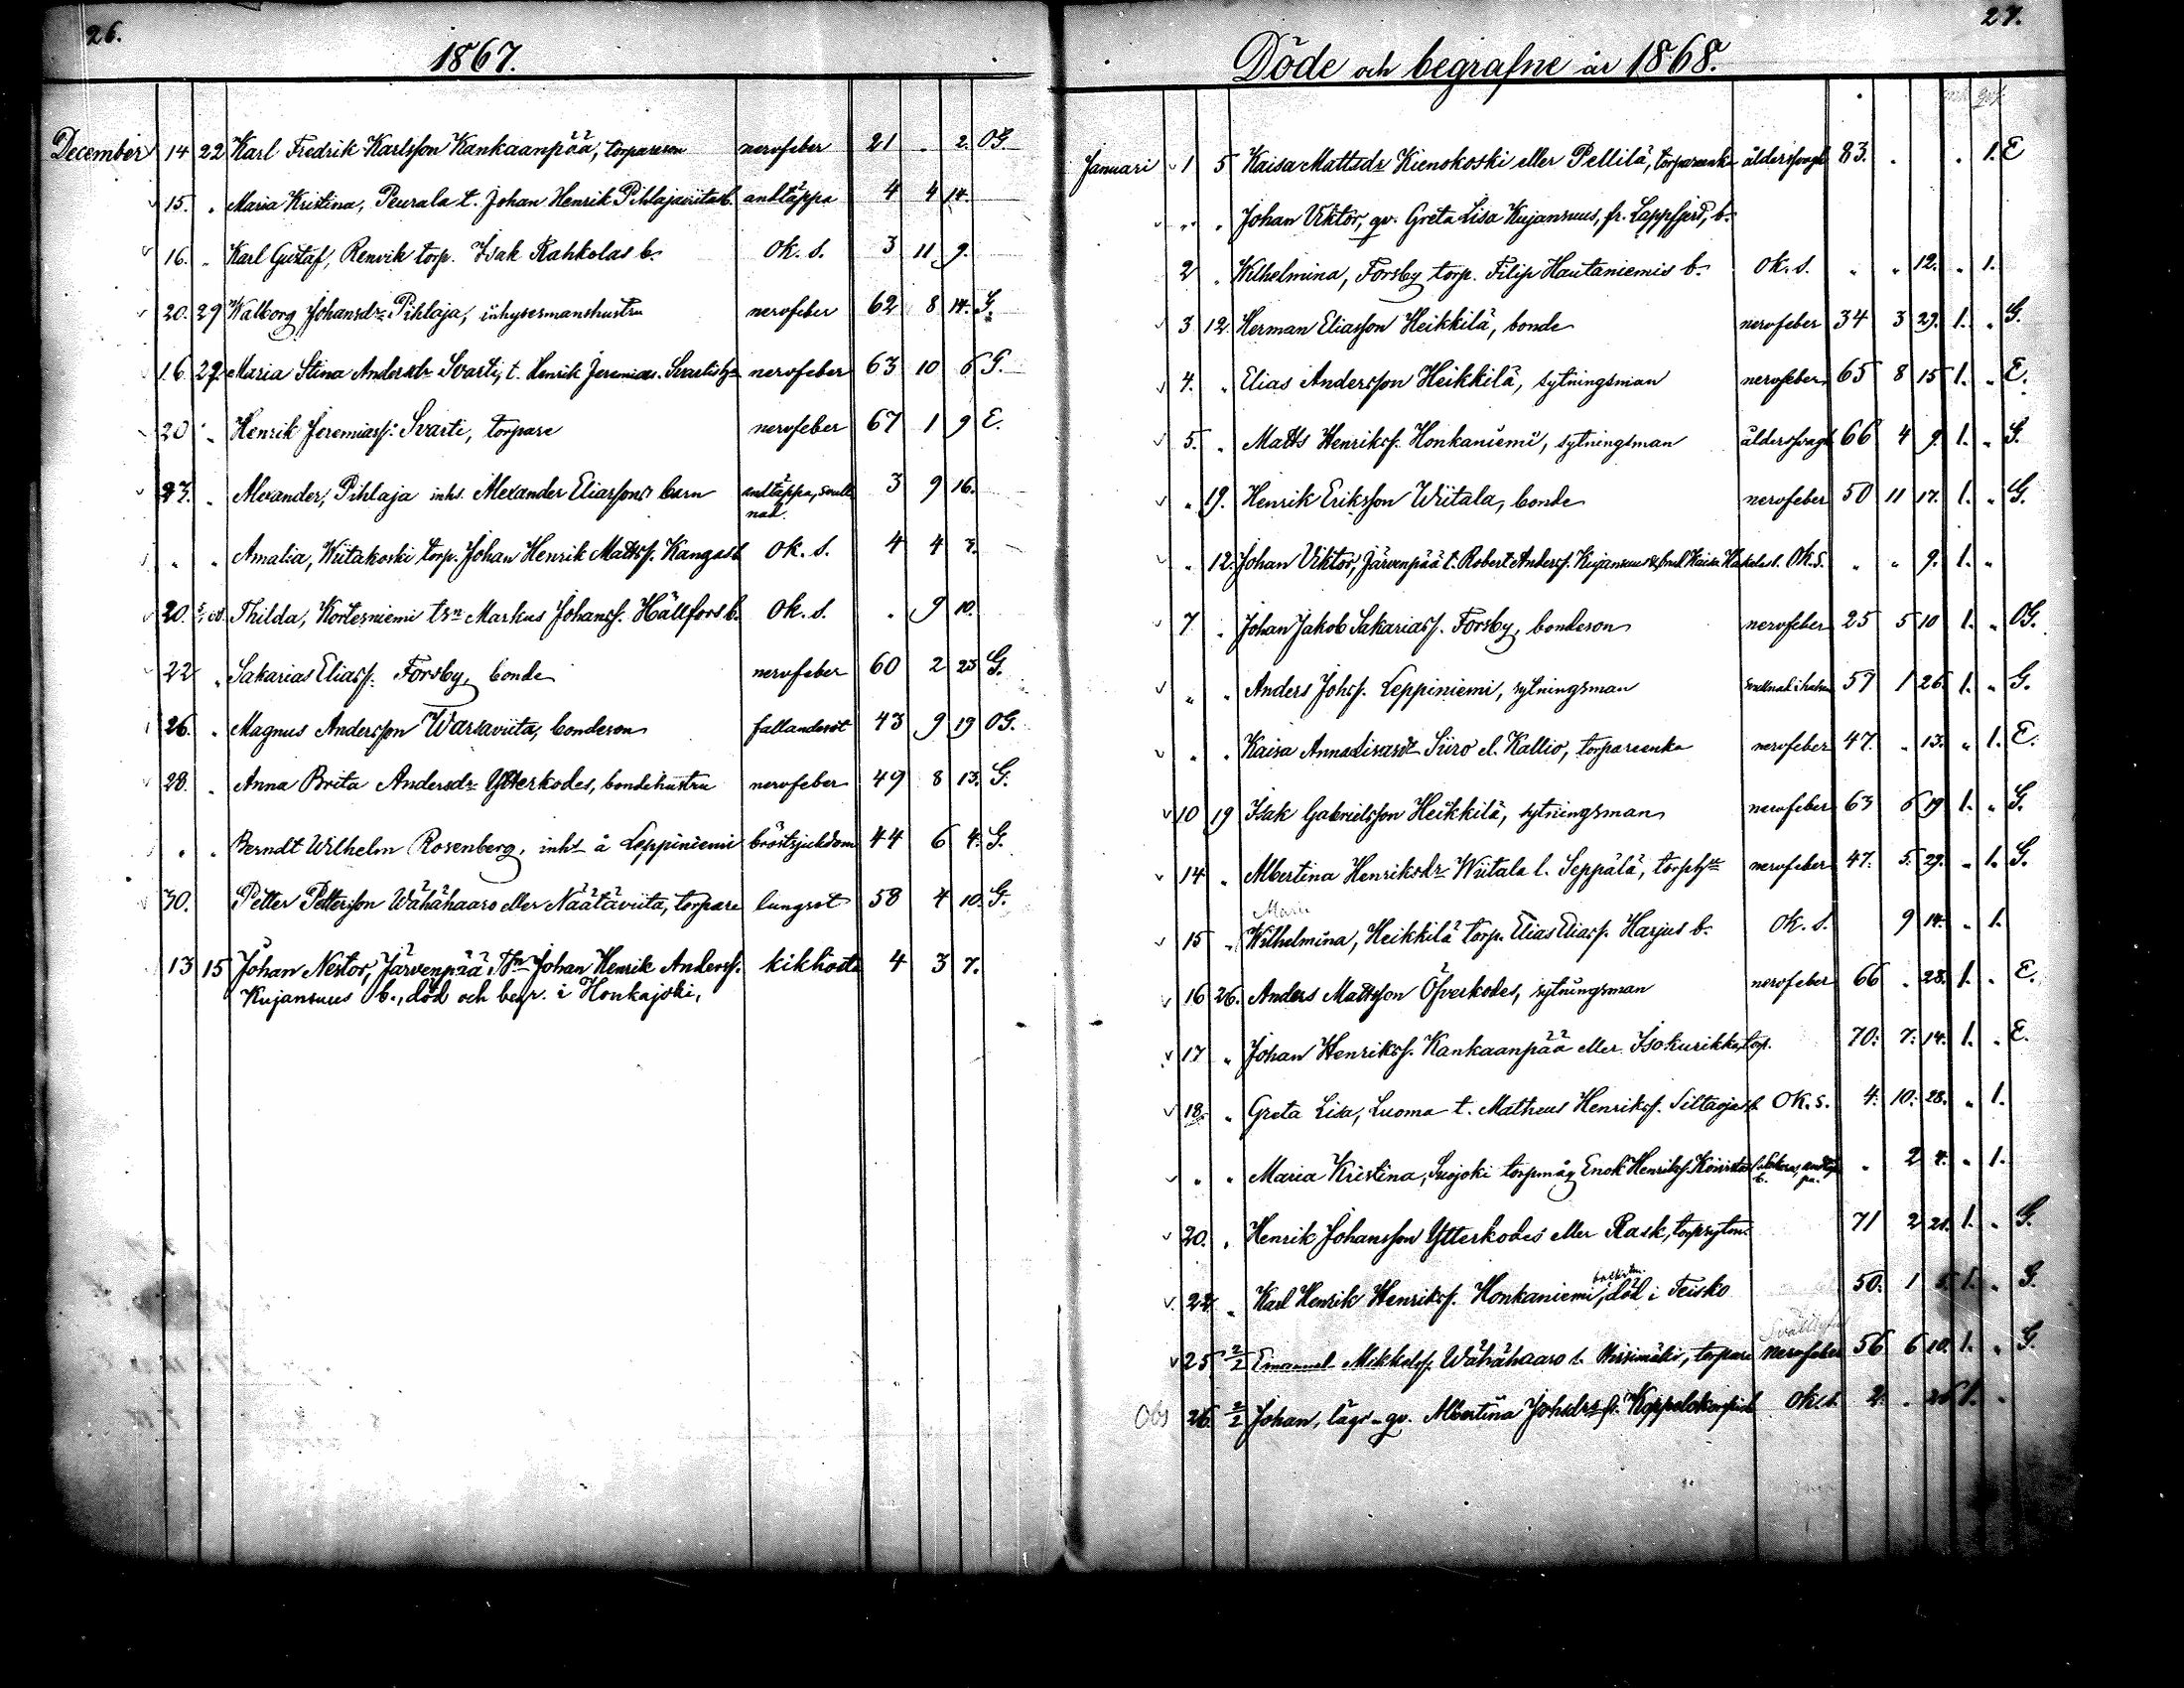 26.
1867.
December 14 22 Karl Fredrik Karlsson Kankaanpää, torpareson nervfeber 21 . 2. OG
15. " Maria Kristina, Peurala t. Johan Henrik Pihlajaviitas b. andtäppa 4 4 14.
16. " Karl Gustaf, Renvik torp. Isak Rahkolas b. Ok. s. 3 11 9.
20. 29 Walborg Johansdr Pihlaja, inhysesmanshustru nervfeber 62 8 14. G.
16 29. Maria Stina Andersdr Svarti, t. Henrik Jeremias. Svartis h. nervfeber 63 10 6 G.
20 " Henrik Jeremiass. Svarti, torpare nervfeber 67 1 9 E.
23. " Alexander, Pihlaja inhs. Alexander Eliassons barn andtäppa, svull
nad. 3 9 16.
" " Amalia, Wiitakoski torp. Johan Henrik Mattss. Kangas b. Ok. s. 4 4 3.
20. Thilda, Kortesniemi Markus Johanss. Hällfors b. Ok. s. . 9 10.
22 " Sakarias Eliass. Forsby, bonde nervfeber 60 2 23 G.
26. " Magnus Andersson Warsaviita, bondeson fallandesot 43 9 19 OG.
28. " Anna Brita Andersdr Ytterkodes, bondehustru nervfeber 49 8 13. G.
" " Berndt Wilhelm Rosenberg, inhs å Leppiniemi bröstsjukdom 44 6 4. G.
30. Petter Pettersson Wähähaaro eller Näätäviita, torpare lungsot 58 4 10. G.
13 15 Johan Nestor, Järvenpää Johan Henrik Anderss. kikhosta 4 3 7.
Kujansuus b., död och begr. i Honkajoki,
27.
Döde och begrafne år 1868.
Januari 1 5 Kaisa Mattsdr Kienokoski eller Pellilä, torpareenka ålderssvagh 83. . . 1. E
" " Johan Viktor, qv. Greta Lisa Kujansuus, fr. Lappfjerd, b.
2 " Wilhelmina, Forsby torp. Filip Hautaniemis b. Ok. s. " " 12. " 1.
3 12. Herman Eliasson Heikkilä, bonde nervfeber 34 3 29. 1. " G.
4. " Elias Andersson Heikkilä, sytningsman nervfeber 65 8 15 1. " E.
5. " Matts Henrikss. Honkaniemi, sytningsman ålderssvagh 66 4 9. 1. " G.
" 19. Henrik Eriksson Wiitala, bonde nervfeber 50 11 17. 1. " G.
" 12. Johan Viktor, Järvenpää t. Robert Anderss. Kujansuus Kaisa Ok. s. " " 9. 1. "
7 " Johan Jakob Sakariass. Forsby, bondeson nervfeber 25 5 10 1. " OG.
" " Anders Johss. Leppiniemi, sytningsman svullnad i halsen 57 1 26. 1. " G.
" " Kaisa Anna Siiro el. Kallio, torpareenka nervfeber 47. " 13. " 1. E.
10 19 Isak Gabrielsson Heikkilä, sytningsman nervfeber 63 6 19 1. " G.
14 " Albertina Henriksdr Wiitala l. Seppälä, nervfeber 47. 5. 29. " 1. G.
Maria
15 " Wilhelmina, Heikkilä torp. Elias Eliass. Harjus b. Ok. s. 9 14. " 1.
16 26. Anders Mattsson Öfverkodes, sytningsman nervfeber 66 . 28. 1. " E.
17 " Johan Henrikss. Kankaanpää eller Isokurikka, torp. 70. 7. 14. 1. " E.
18. " Greta Lisa, Luoma t. Matheus Henrikss. Siltaojas b. Ok. s. 4. 10. 28. " 1.
" " Maria Kristina, Suojoki torpmåg Enok Henrikss. Koivistos b. andtäppa. " 2 4. " 1.
20. " Henrik Johansson Ytterkodes eller Rask, torpsytm. 71 2 21. 1. " G.
22. " Karl Henrik Henrikss. Honkaniemi, död i Teisko 50. 1 5. 1. " G.
25 2/2 Emanuel Mikkelss. Wähähaaro l. torpare nervfeber 56 6 10. 1. " G.
Obs 26. 2/2 Johan, lägr. qv. Albertina Johsdrs fr. Ok. s. 2. . 26 1. .